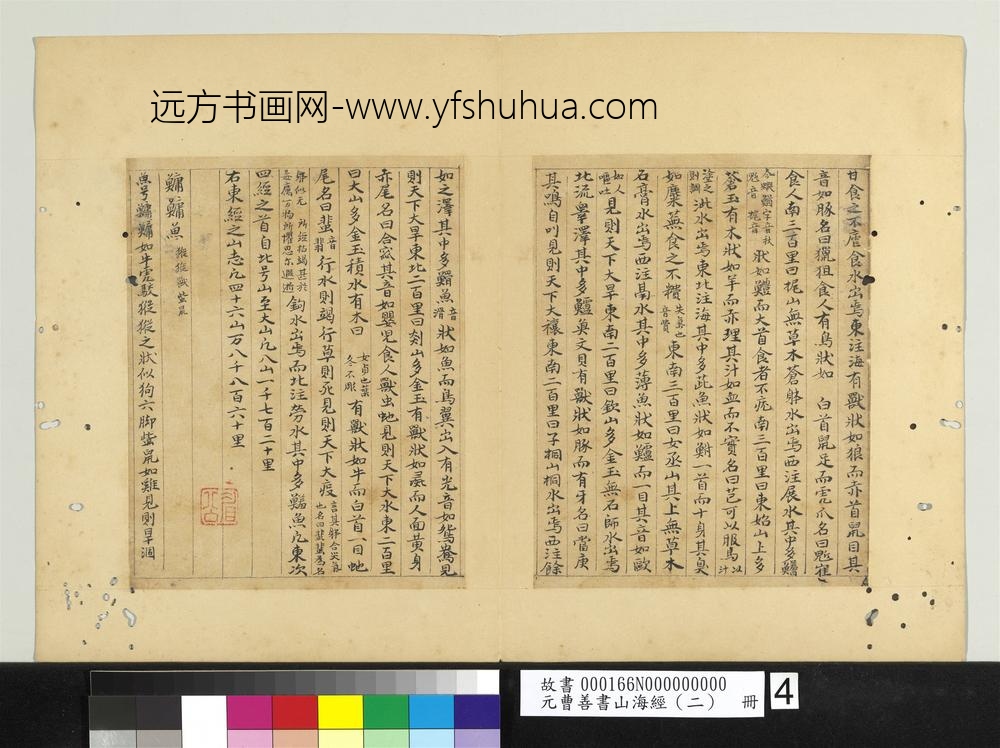 远方书画网-www.yfshuhua.com
甘食之不瘧食水出焉東注海有獸狀如狼而赤首鼠目其
音如豚名曰獦狙食人有鳥狀如 白首鼠足而虎爪名曰鬿雀
食人南三百里曰旄山無草木蒼躰水出焉西注展水其中多鱃
魚 狀如鯉而大首食者不疣南三百里曰東始山上多
蒼玉有木狀如羊而赤理其汁如血而不實名曰芑可以服馬 以汁
塗之則調 泚水出焉東北注海其中多茈魚狀如鮒一首而十身其臭
如麋蕪食之不糟 失氣也 東南三百里曰女烝山其上無草木
石膏水出焉西注鬲水其中多薄魚狀如鱣而一目其音如歐
如人嘔吐 見則天下大旱東南二百里曰欽山多金玉無石師水出焉
北流 睾澤其中多鱃魚文貝有獸狀如豚而有牙名曰當庚
其鳴自叫見則天下大穰東南二百里曰子桐山桐水出焉西注餘
如之澤其中多䱻魚 音滑 狀如魚而鳥翼出入有光音如鴛鴦見
則天下大旱東北二百里曰剡山多金玉有獸狀如彘而人面黃身
赤尾名曰合窳其音如嬰兒食人獸虫虵見則天下大水東二百里
曰大山多金玉積水有木曰 女貞也葉冬不彫 有獸狀如牛而白首一目虵
尾名曰蜚 音翡 行水則竭行草則死見則天下大疫
鈎水出焉而北注勞水其中多鱃魚凡東次
四經之首自北号山至大山凡八山一千七百二十里
右東經之山志凡四十六山万八千八百六十里
鱅鱅魚 㺔㺔獸 蚩鼠
魚号鱅鱅如牛虎駮㺔㺔之狀似狗六脚蚩鼠如雞見則旱涸
故書 000166N000000000
元曹善書山海經（二） 冊
4